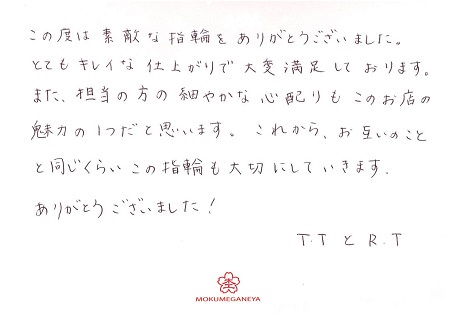 この度は素敵な指輪をありがとうございました。
とてもキレイな仕上がりで大変満足しております。
また、担当の方の細やかな心配りもこのお店の
魅力の1つだと思います。これから、お互いのこと
と同じくらいこの指輪も大切にしていきます.
ありがとうございました!
T.TとR.T
MOKUMEGANEYA